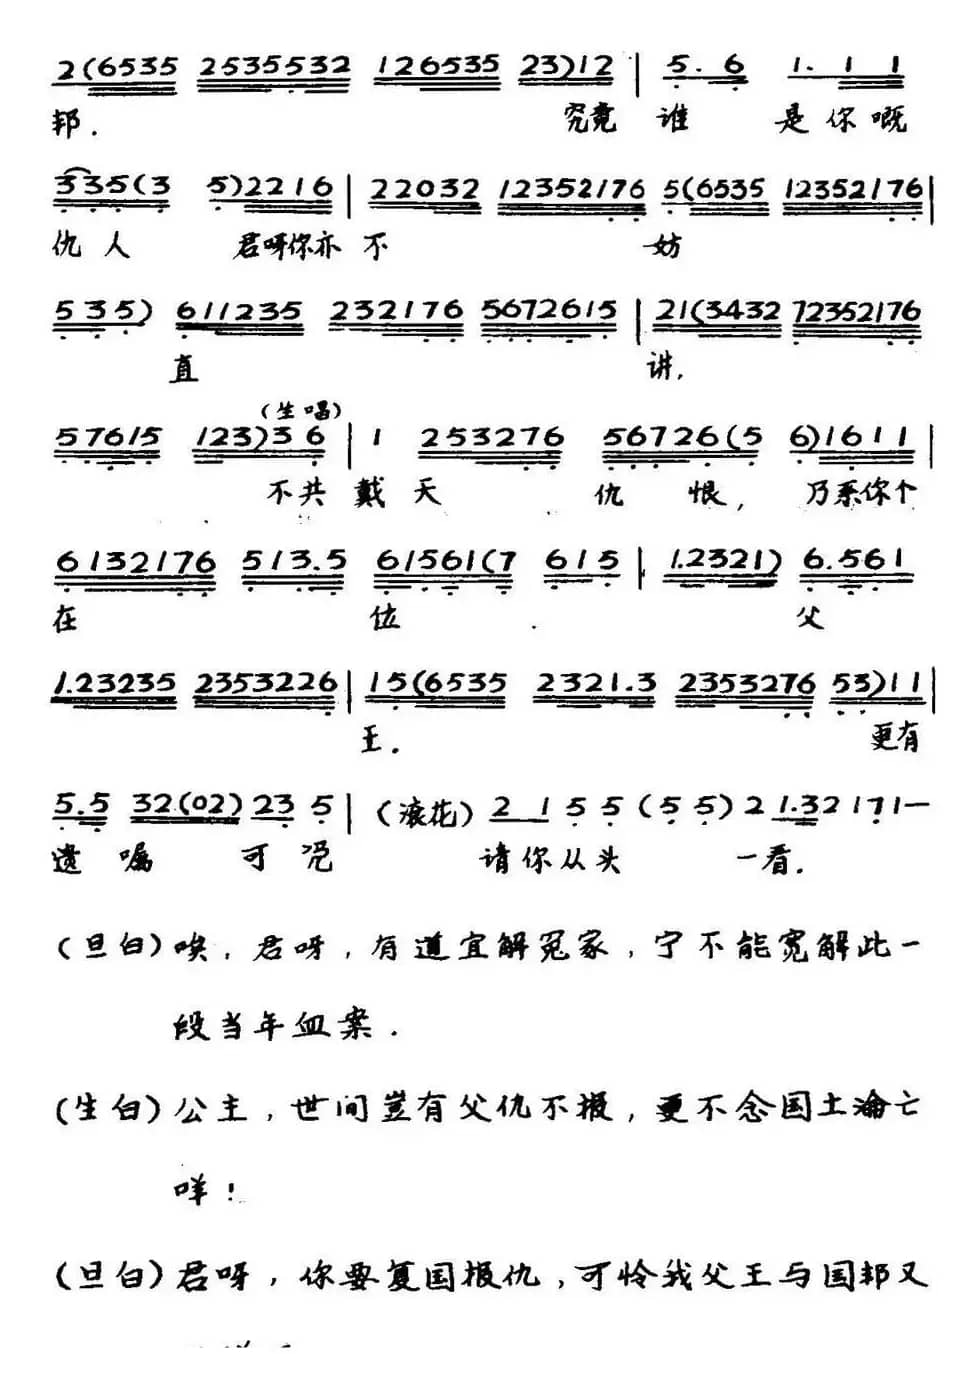 2(6535 2535532 126535 23)12 | 5.6 1.11
邦. 究竟 谁 是你嘅
335(3 5)2216 | 22032 12352176 5(6535 12352176 |
仇人 君呀你亦不 妨
535) 611235 232176 5672615 | 21(3432 72352176
直 讲,
(生唱)
57615 123)36 | 1 253276 56726(5 6)1611 |
不共戴天 仇恨, 乃系你个
6132176 513.5 61561(7 615 | 1.2321) 6.561
在 位. 父
1.23235 2353226 | 15(6535 2321.3 2353276 53)11 |
王. 更有
5.5 32(02) 23 5 | (滚花) 2 1 5 5 (5 5) 2 1.3 2 1 7 1 —
遗嘱 可况 请你从头 一看.
(旦白) 唉, 君呀, 有道宜解冤家, 宁不能宽解此一
段当年血案.
(生白) 公主, 世间岂有父仇不报, 更不念国土沦亡
咩!
(旦白) 君呀, 你要复国报仇, 可怜我父王与国邦又